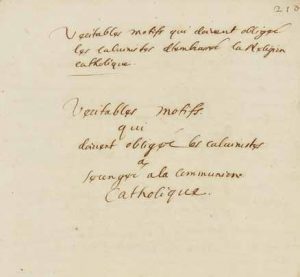 210
Veritables motifs qui doivent obliger
les calvinistes d'embrasser la Religion
catholique.
Veritables motifs.
qui
doivent obliger les calvinistes
a
se ranger a la communion
Catholique.